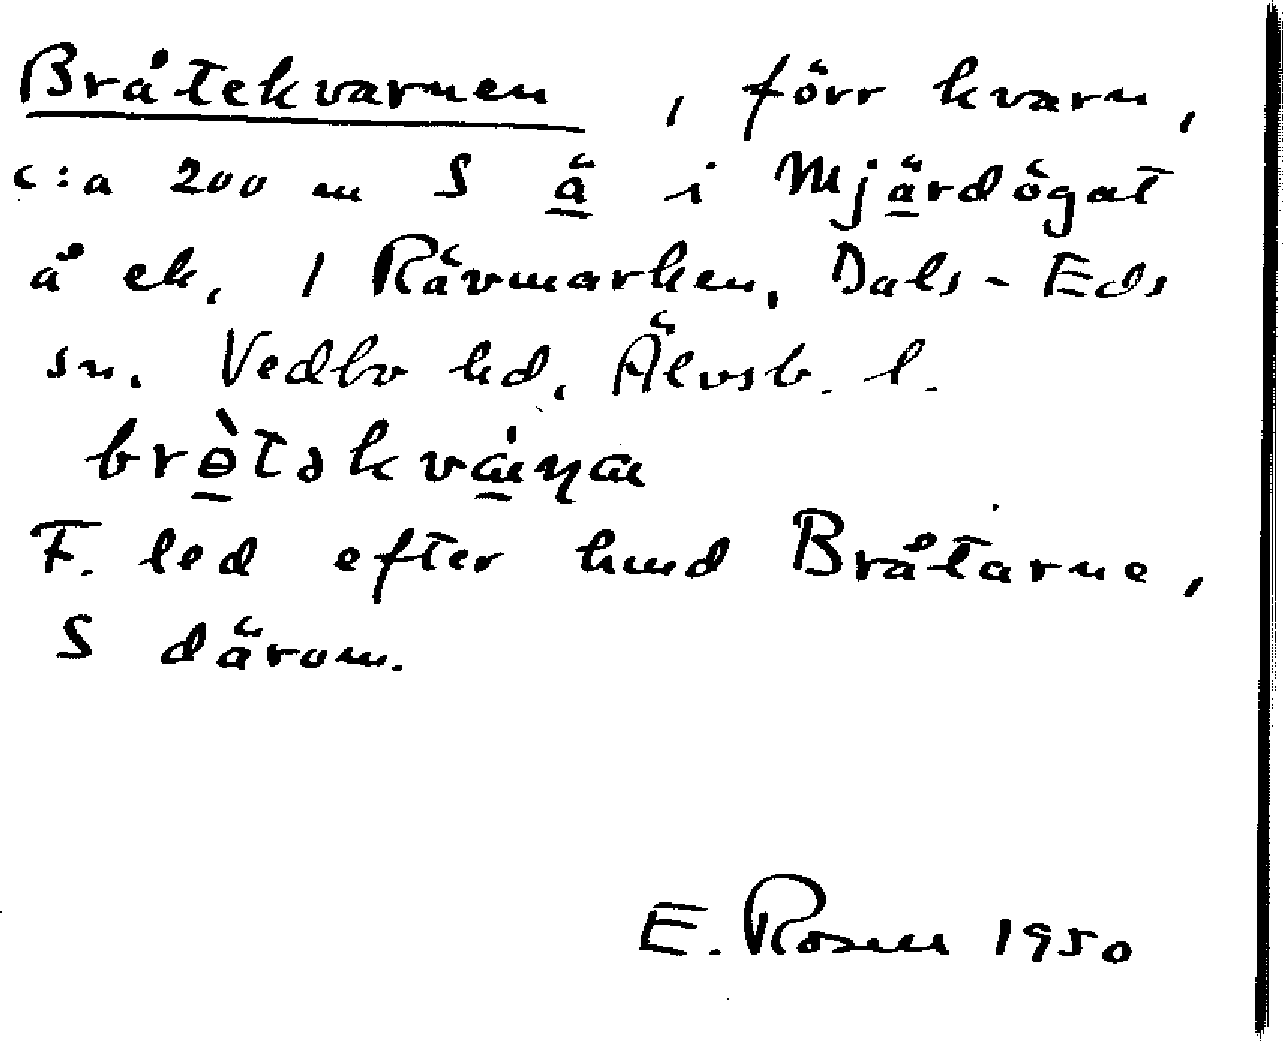 Bråtekvarnen, förr kvarn,
c:a 200 m S ä i Mjärdögat
å ek, 1 Rävmarken, Dals-Eds
sn. Vedbo hd, Älvsb. l.
brètəkvæ̀ɳa
F. led efter hmd Bråtarne,
S därom.
E. Rosen 1950